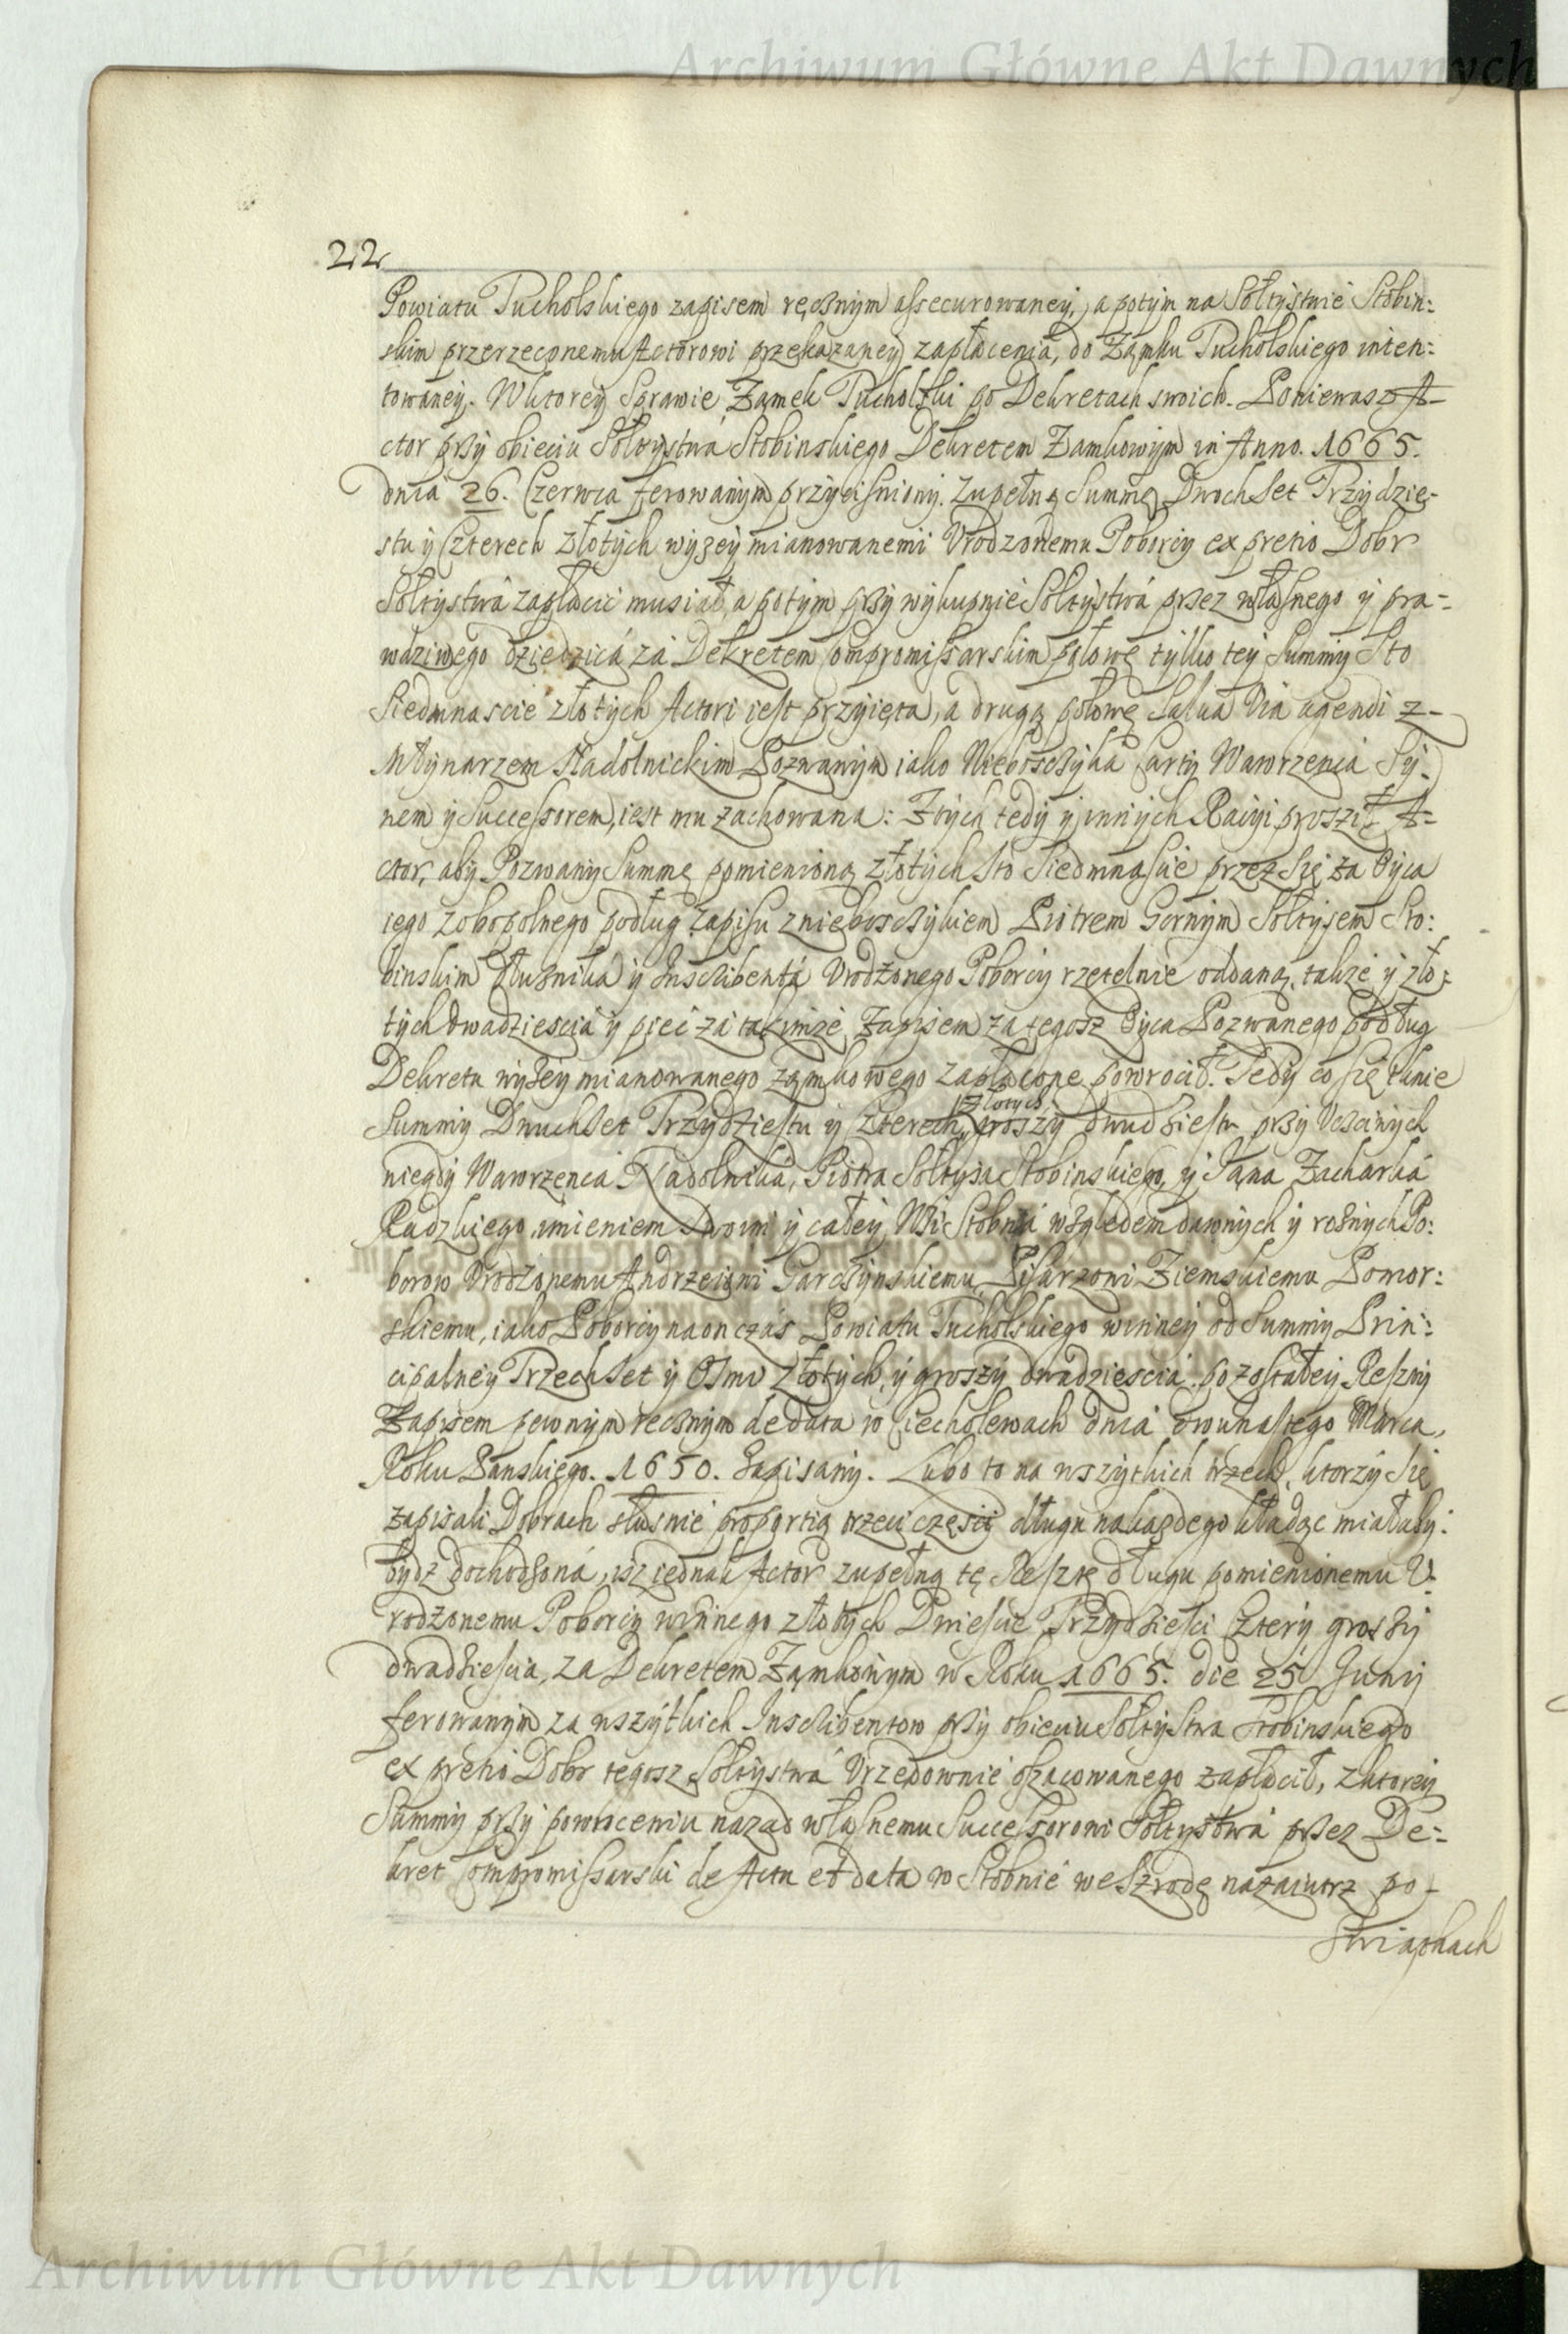 Archiwum Główne Akt Dawnych
22
Powiatu Tucholskiego zapisem ręcznym assecurowaney, a potym na Sołtystwie Stobin:
skim przerzeconemu Actorowi przekazaney zapłacenia, do Zamku Tucholskiego inten:
towaney. W ktorey Sprawie Zamek Tucholski po Dekretach swoich. Poniewasz A-
ctor przy obięciu Sołtystwa Stobinskiego Dekretem Zamkowym in Anno. 1665.
dnia 26. Czerwca ferowanym przyciśniony. Zupełną Summę Dwoch Set Trzydzie-
stu y Czterech złotych wyzey mianowanemi Vrodzonemu Poborcy ex pretio Dobr
Sołtystwa zapłacic musiał, a potym przy wykupnie Sołtystwa przez własnego y pra-
wdziwego dziedzica za Dekretem Compromissarskim połowę tylko tey Summy Sto
Siedmnascie złotych Actori iest przyięta, a drugą połowę Salua Via agendi z-
Młynarzem Nadolnickim Pozwanym iako Nieboszczyka Warzenca Sy-
nem y Successorem, iest mu zachowana: Ztych tedy y innych Racyi prosził A-
ctor, aby Pozwany Summę pomienioną złotych Sto Siedmnaście przez się za Oyca
iego zobopolnego podług zapisu z nieboszczykiem Piotrem Gornym Sołtysem Sto:
binskim Dłusznika y Inscribenta Vrodzonego Poborcy rzetelnie oddaną, takze y zło-
tych dwadziescia y pięc za takimze Zapisem za tegosz Oyca Pozwanego podług
Dekretu wyzey mianowanego zamkowego zapłacone powrocił. Tedy co się tknie
Summy Dwuch Set Trzydziestu y Czterech złotych groszy dwudziestu przy Vcciwych
niegdy Wawrzenca Nadolnika, Piotra Sołtysa Stobinskiego, y Jana Zacharka
Radzkiego imieniem Swoim y całey Wsi Stobna względem dawnych y roznych Po:
borow Vrodzonemu Andrzeiowi Garczynskiemu Pisarzowi Ziemskiemu Pomor:
skiemu, iako Poborcy na on czas Powiatu Tucholskiego winney od Summy Prin:
cipalney Trzech Set y Osmi Złotych, y groszy dwadziescia pozostałey Reszty
Zapisem pewnym recznym de data w Ciecholewach dnia dwunastego Marca,
Roku Panskiego. 1650. Zapisany. Lubo to na wszytkich trzech, ktorzy się
zapisali Dobrach słusnie proportią trzeci częsci długu na kazdego kładąc miałaby:
bydz dochodzona, isz iednak Actor zupełną tę Resztę długu pomienionemu V-
rodzonemu Poborcy winnego złotych Dwieście Trzydzieści Cztery groszy
dwadzieścia, za Dekretem Zamkowym w Roku 1665. die 25 Juny
ferowanym za wszytkich Inscribentow przy obięciu Sołtystwa Stobinskiego
ex pretio Dobr tegosz Sołtystwa Vrzędownie oszacowanego zapłacił, z ktorey
Summy przy powroceniu nazad własnemu Successorowi Sołtystwa przez De-
kret Compromissarski de Actu et data w Stobnie we Szrodę nazaiutrz po-
Swiątkach
Archiwum Główne Akt Dawnych